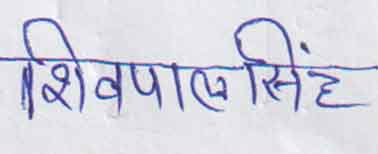 शिवपाल सिंह